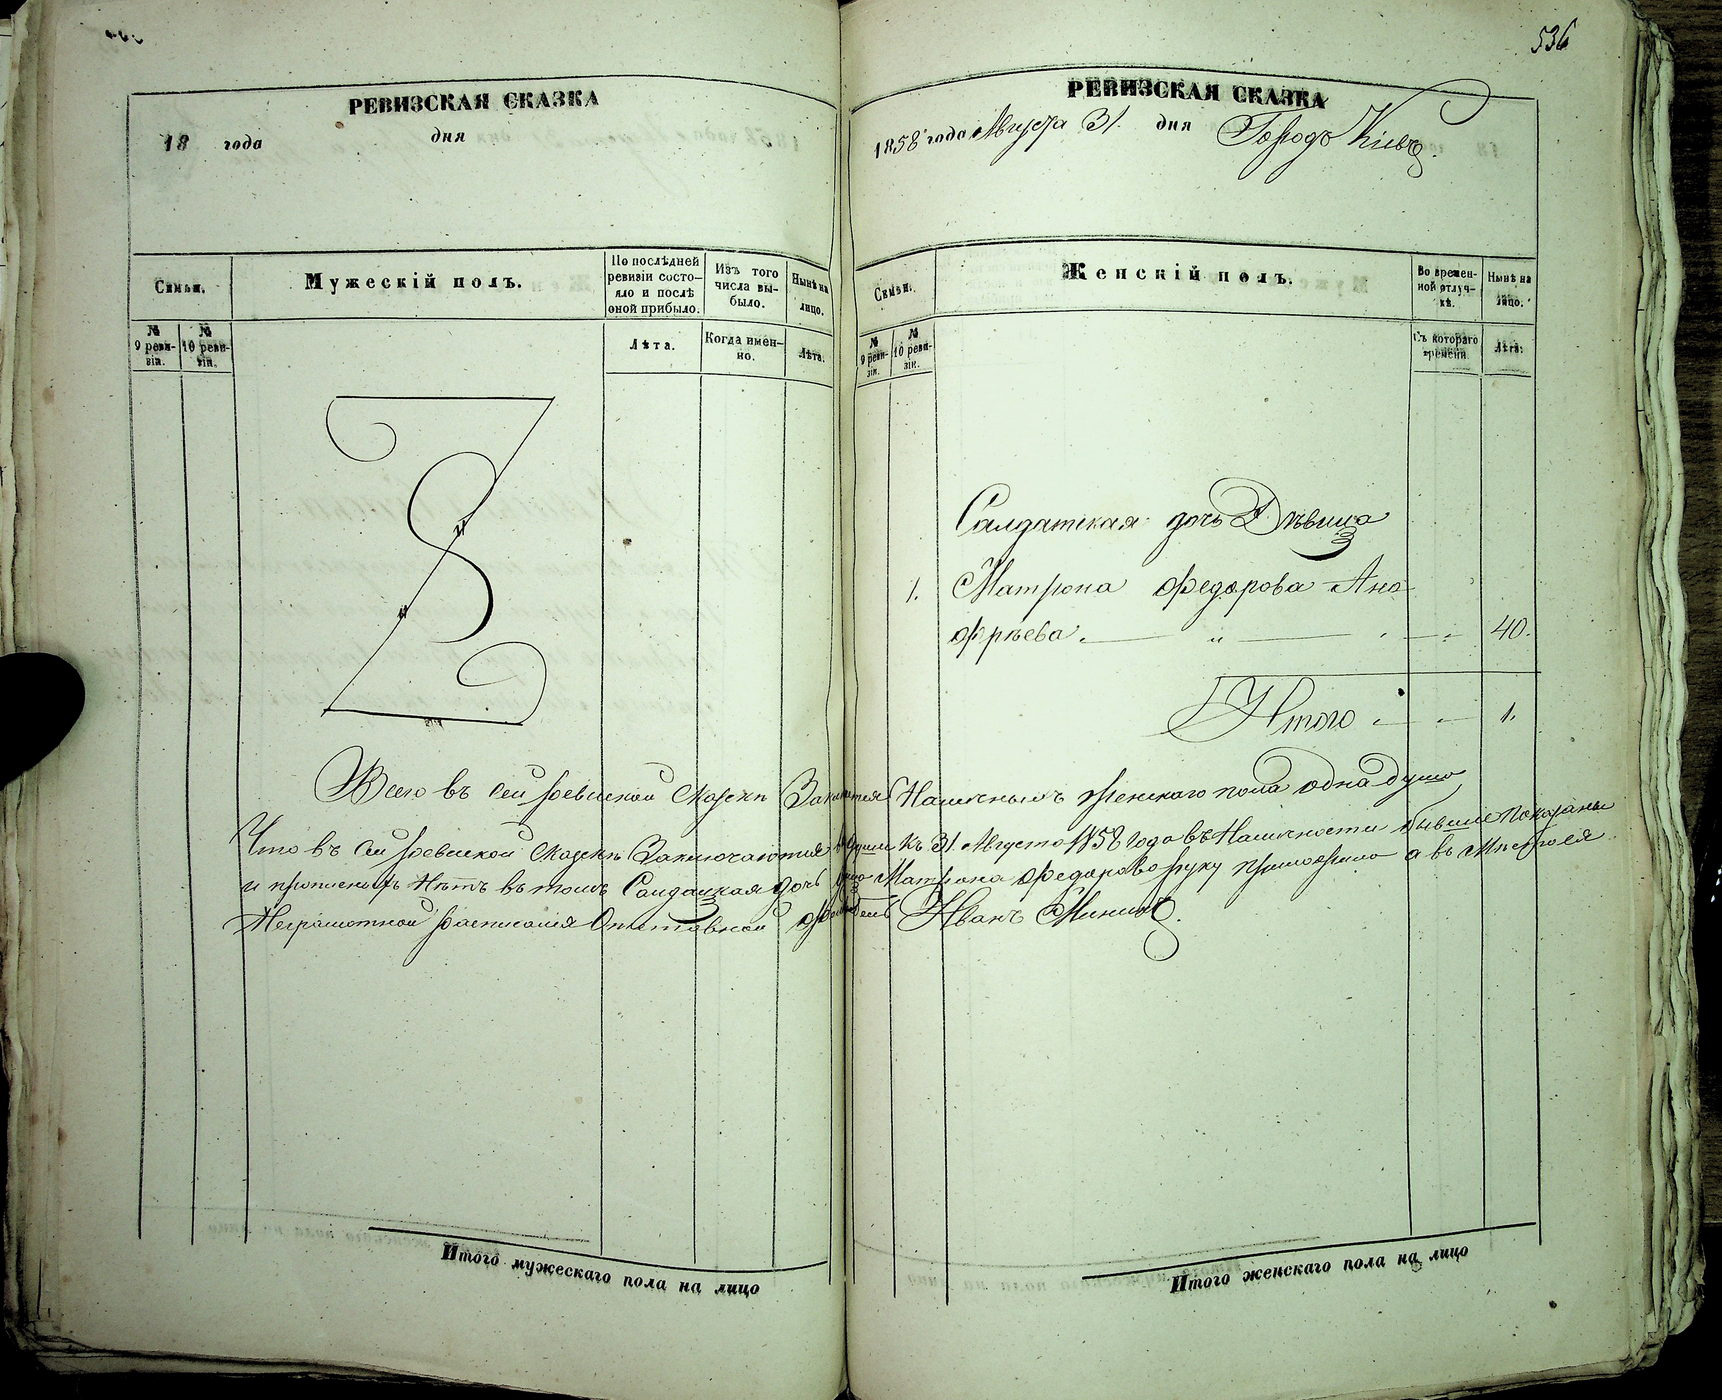 536
РЕВИЗСКАЯ СКАЗКА
18 года дня
Семьи.
Мужескій полъ.
По послѣдней ревизіи состо-
яло и послѣ оной прибыло.
Изъ того числа вы-
было.
Нынѣ на лицо.
№ 9 реви-
зіи.
№ 10 реви-
зіи.
Лѣта.
Когда имен-
но.
Лѣта.
РЕВИЗСКАЯ СКАЗКА
1858 года Августа 31. дня Городъ Кіевъ.
Семьи.
Женскій полъ.
Во времен-
ной отлуч-
кѣ.
Нынѣ на лицо.
№ 9 реви-
зіи.
№ 10 реви-
зіи.
Съ котораго времени.
Лѣта.
Салдатская дочь Дѣвица
1. Матрона Федорова Ано
фрѣева. 40.
Итого 1.
Всего въ сей ревиской Скаски Наличныхъ женскаго пола одна душа
Что въ сей ревиской скаскѣ Заключаются души къ 31. Августа 1858 года въ Наличности бывшие показаны
и прописныхъ Нѣтъ въ томъ Салдацкая дочь Матрона Федорова руку приложила а въ мѣсто ея
Неграмотной росписался Отставной Иванъ
Итого мужескаго пола на лицо
Итого женскаго пола на лицо